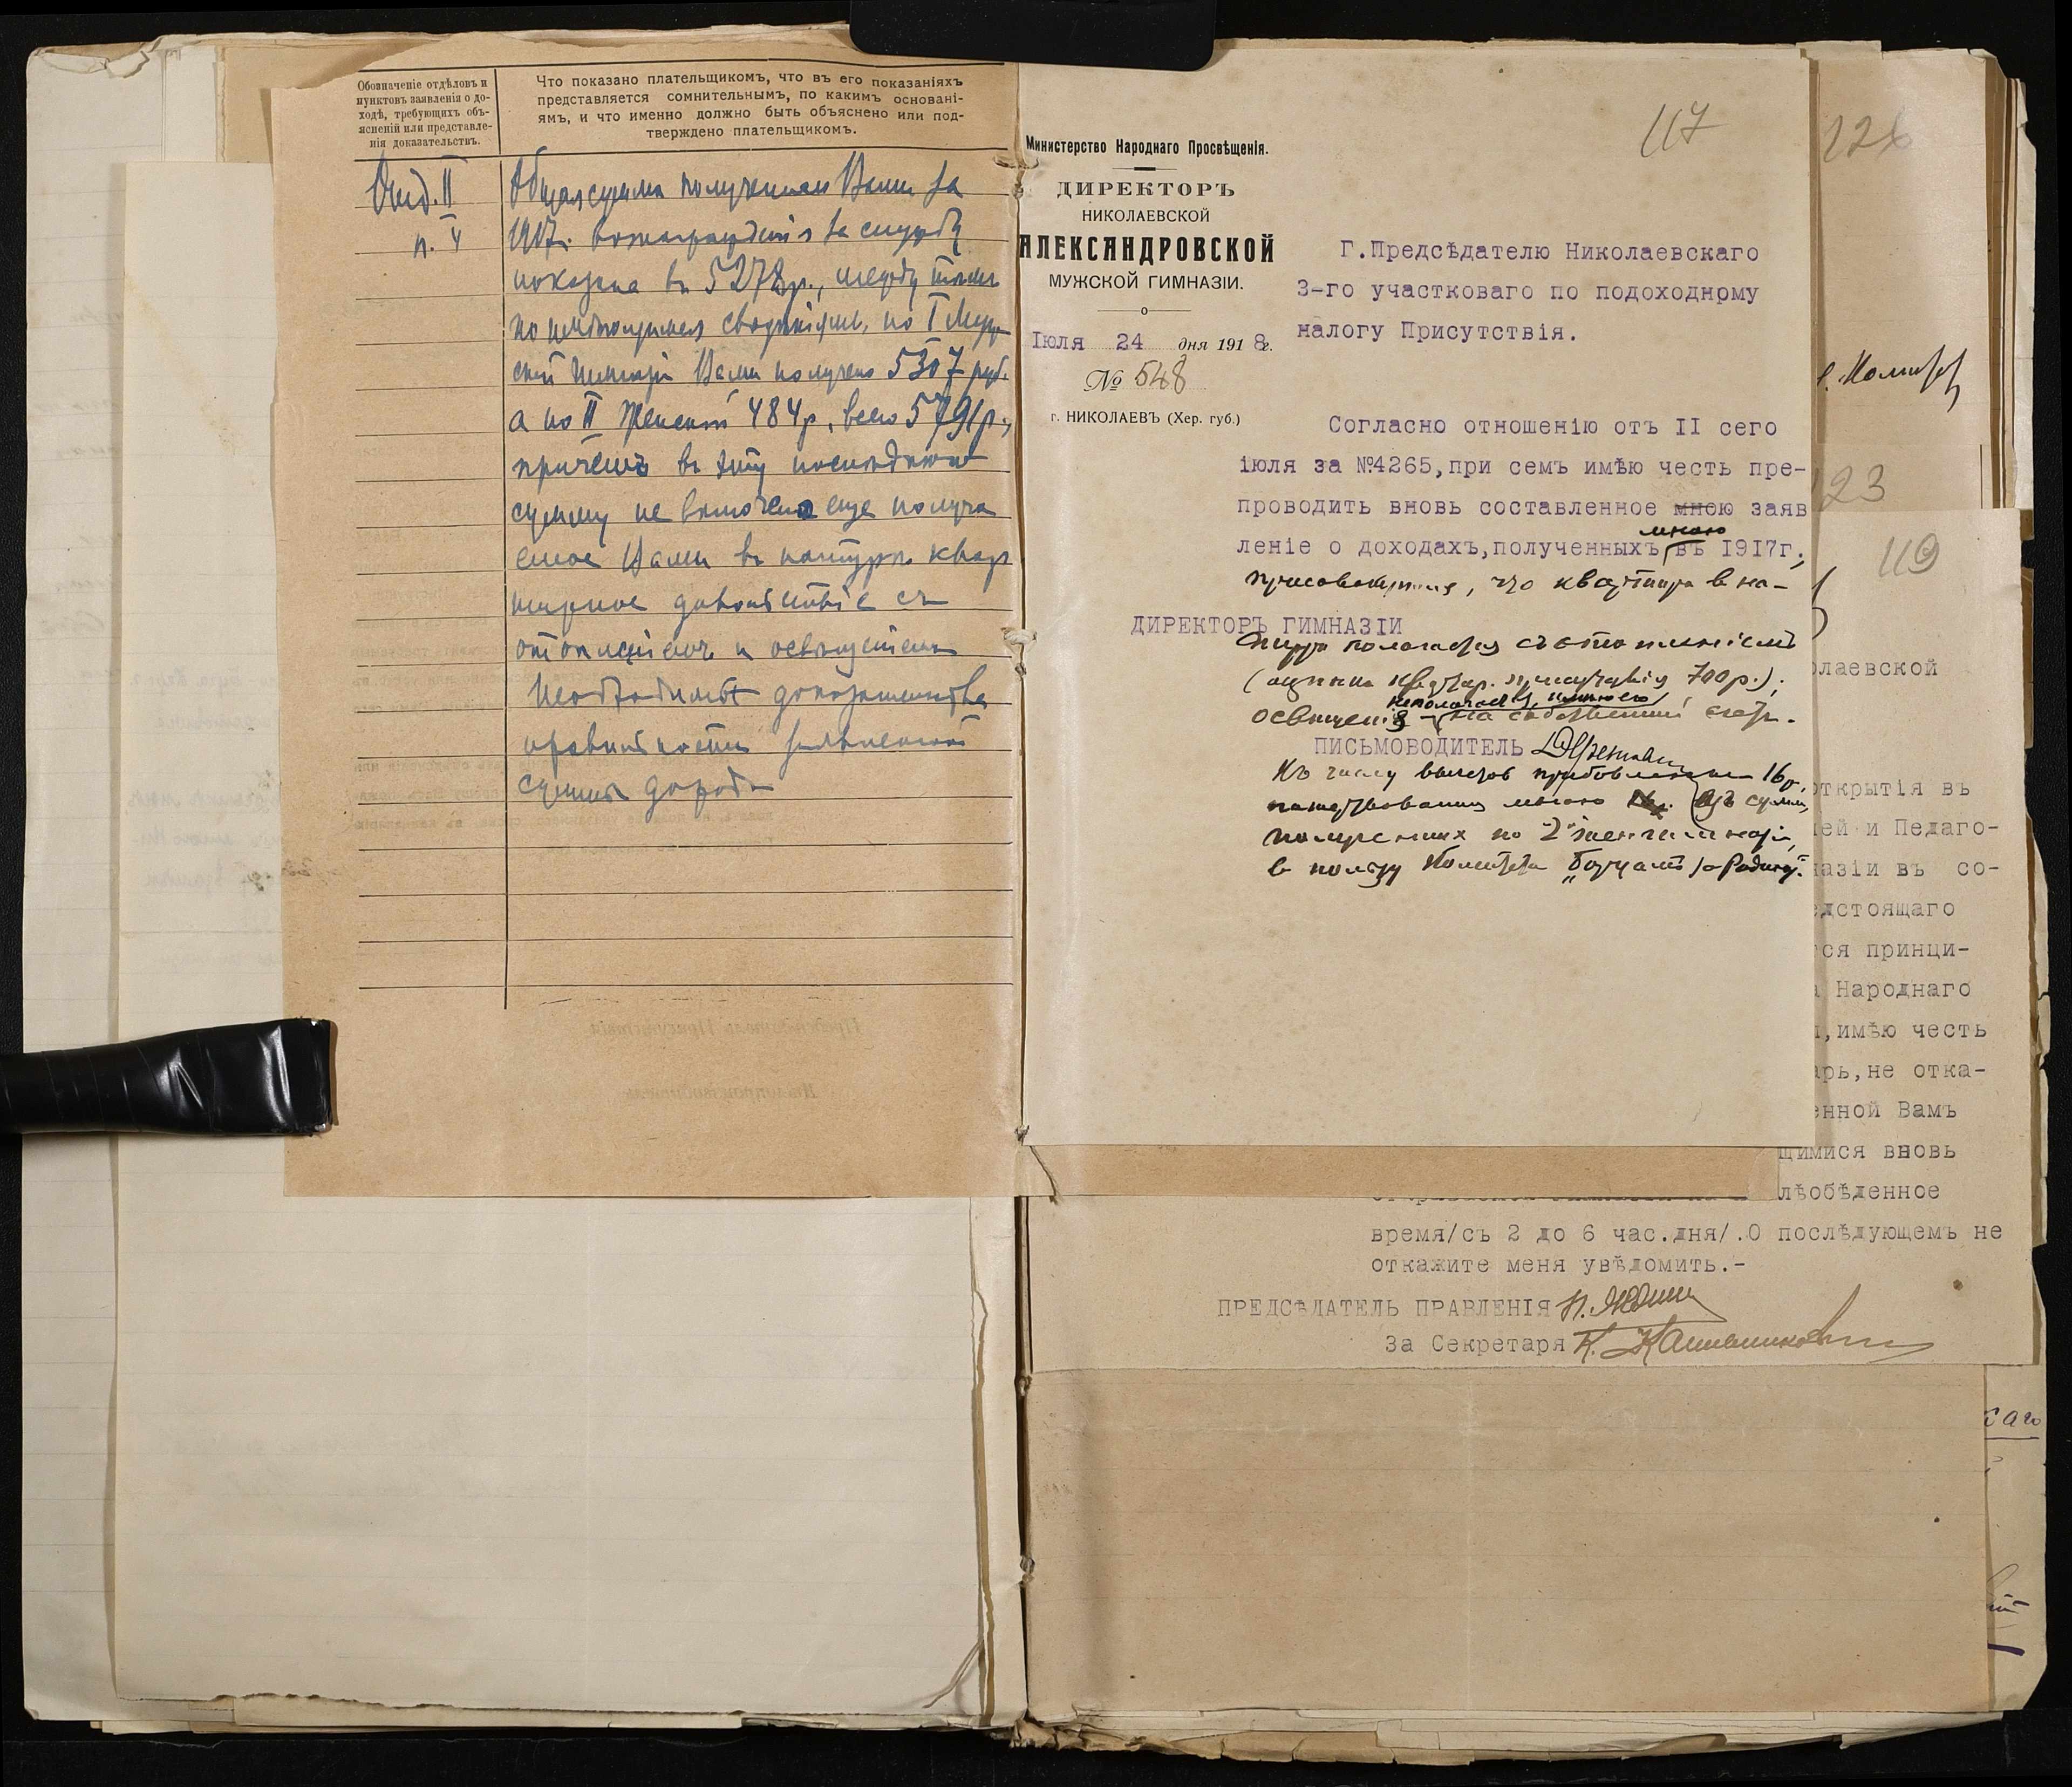 Обозначеніе отдѣловъ и
пунктовъ заявленія о до-
ходѣ, требующихъ объ-
ясненій или представле-
нія доказательствъ.
Что показано плательщикомъ, что въ его показаніяхъ
представляется сомнительнымъ, по какимъ основані-
ямъ, и что именно должно быть объяснено или под-
тверждено плательщикомъ.
Отд. II
п. 4
Общая сумма полученнаго Вами за
1917г. вознагражденія за службу
показана въ 5278р., между тѣмъ
по имѣющимся свѣдѣніямъ, по I Муж
ской Гимназіи Вами получено 5307 руб.
а по II Женской 484р, всего 5791р.,
причемъ въ эту послѣднюю
сумму не включено еще получа
емое Вами въ натурѣ квар
тирное довольствіе съ
отопленіемъ и освѣщеніемъ
Необходимы доказательства
правильности заявленной
суммы дохода
117
Министерство Народнаго Просвѣщенія.
ДИРЕКТОРЪ
НИКОЛАЕВСКОЙ
АЛЕКСАНДРОВСКОЙ
МУЖСКОЙ ГИМНАЗІИ.
Іюля 24 дня 1918г.
№ 548
г. НИКОЛАЕВЪ (Хер. губ.)
Г.Предсѣдателю Николаевскаго
3-го участковаго по подоходному
налогу Присутствія.
Согласно отношенію отъ II сего
іюля за №4265,при семъ имѣю честь пре-
проводить вновь составленное мною заяв
мною
леніе о доходахъ,полученныхъ въ 1917г;
присовокупляя, что квартира в на-
ДИРЕКТОРЪ ГИМНАЗІИ
турѣ полагается съ отопленіемъ
(оцѣнка квартир. 700р.);
не полагается, имѣю его
освѣщенія - на собственный счетъ.
ПИСЬМОВОДИТЕЛЬ
Къ числу вычетов 16р,
пожертвованныя мною изъ суммы,
полученных по 2 жен. гимназіи,
в пользу Комитета "Борцамъ за Родину".
126
123
119
олаевской
открытія въ
лей и Педаго-
назіи въ со-
едстоящаго
тся принци-
а Народнаго
,имѣю честь
арь,не отка-
енной Вамъ
щимися вновь
лѣобѣденное
время/съ 2 до 6 час.дня/.О послѣдующемъ не
откажите меня увѣдомить.-
ПРЕДСѢДАТЕЛЬ ПРАВЛЕНІЯ
За Секретаря
каго